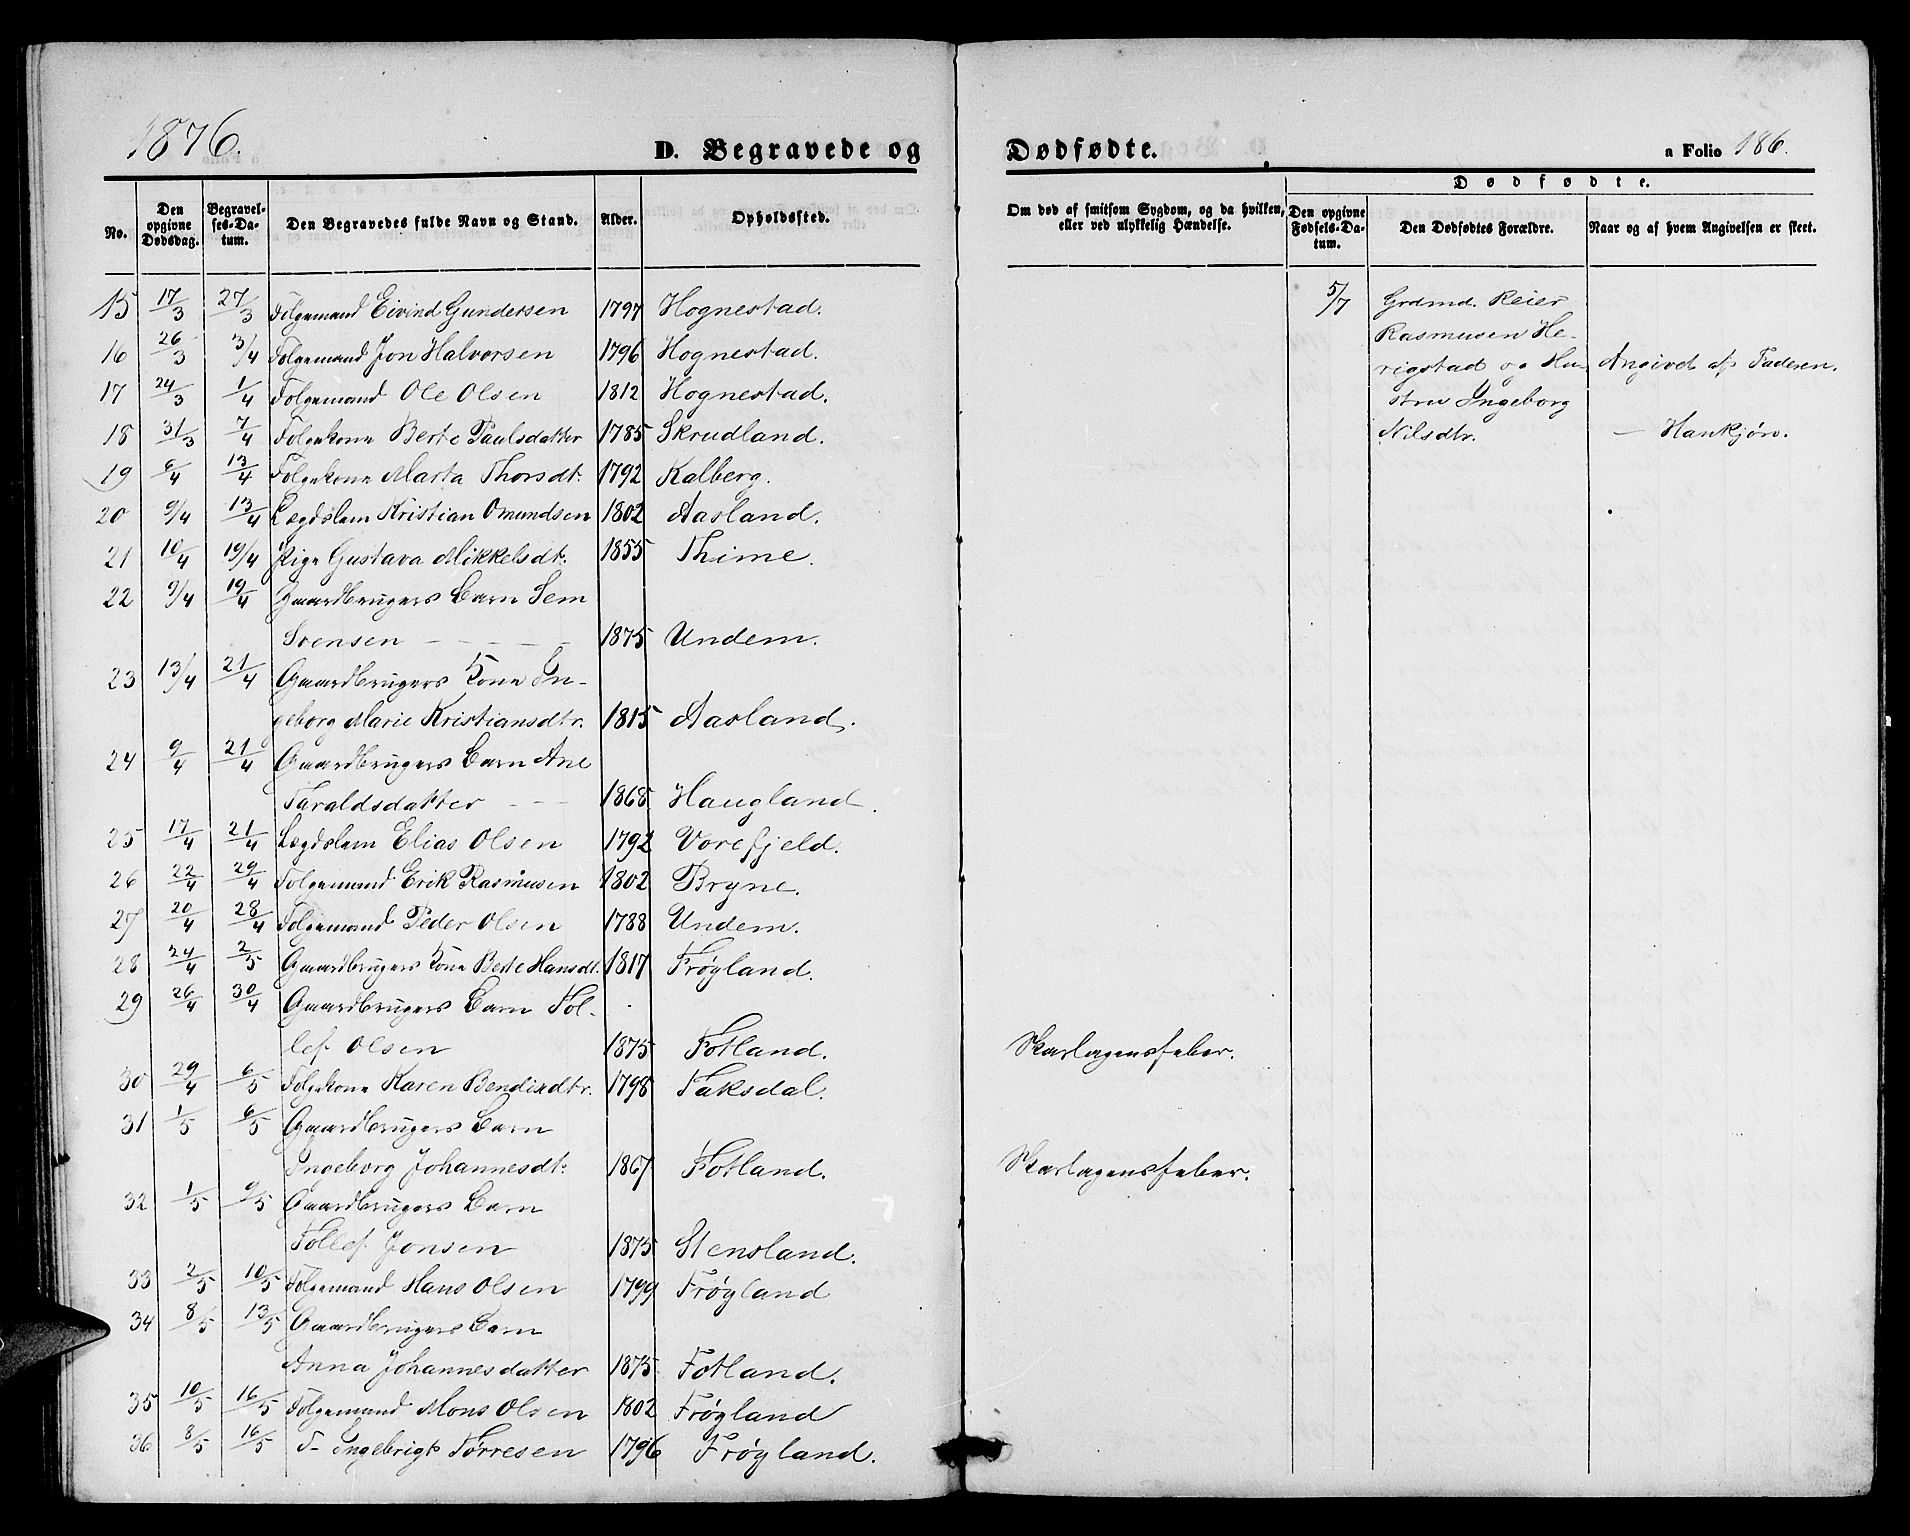 1876.
D. Begravede og
Dødfødte.
a Folio 186.
No.
Den opgivne Dødsdag.
Begravelses-Datum.
Den Begravedes fulde Navn og Stand.
Alder.
Opholdssted.
Om død af smitsom Sygdom, og da hvilken, eller ved ulykkelig Hændelse.
Dødfødte.
Den opgivne Fødsels-Datum.
Den Dødfødtes Forældre.
Naar og af hvem Angivelsen er skeet.
15 17/3 27/3 Folgemand Eivind Gundersen 1797 Hognestad.
16 26/3 3/4 Folgemand Jon Halvorsen 1796 Hognestad.
17 24/3 1/4 Folgemand Ole Olsen 1812 Hognestad.
18 31/3 7/4 Folgekone Berte Paulsdatter 1785 Skrudland.
19 6/4 13/4 Folgekone Marta Thorsdt. 1792 Kalberg.
20 9/4 13/4 Lægdslem Kristian Omundsen 1802 Aasland.
21 10/4 19/4 Pige Gustava Mikkelsdt. 1855 Thime.
22 9/4 19/4 Gaardbrugers Barn Sem
Svensen - - - - 1875 Undem.
23 13/4 21/4 Gaardbrugers Kone In-
geborg Marie Kristiansdtr. 1815 Aasland.
24 9/4 21/4 Gaardbrugers Barn Ane
Taraldsdatter - - - 1868 Haugland.
25 17/4 21/4 Lægdslem Elias Olsen 1792 Vorefjeld.
26 22/4 29/4 Folgemand Erik Rasmusen 1802 Bryne.
27 20/4 28/4 Folgemand Peder Olsen 1788 Undem.
28 24/4 2/5 Gaardbrugers Kone Berte Hansdt. 1817 Frøyland.
29 26/4 30/4 Gaardbrugers Barn Tol-
lef Olsen 1875 Fotland. Skarlagensfeber.
30 29/4 6/5 Folgekone Karen Bendixdtr. 1798 Taksdal.
31 1/5 6/5 Gaardbrugers Barn
Ingeborg Johannesdt. 1867 Fotland. Skarlagensfeber.
32 1/5 9/5 Gaardbrugers Barn
Tollef Jonsen 1875 Stensland.
33 2/5 10/5 Folgemand Hans Olsen 1799 Frøyland
34 8/5 13/5 Gaardbrugers Barn
Anna Johannesdatter 1875 Fotland.
35 10/5 16/5 Folgemand Mons Olsen 1802 Frøyland
36 8/5 16/5 F- Ingebrigt Torresen 1796 Frøyland.
5/7 Grdmd. Reier
Rasmusen He-
rigstad og Hu- Angivet af Faderen.
stru Ingeborg
Nilsdtr. - Hankjøn.